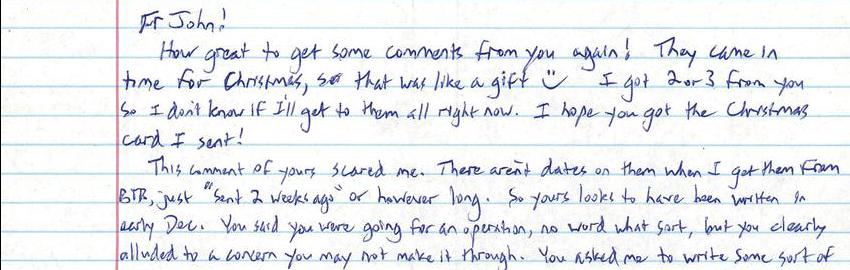 Fr John!
How great to get some comments from you again! They came in
time for Christmas, so that was like a gift I got 2 or 3 from you
so I don't know if I'll get to them all right now. I hope you got the Christmas
card I sent!
This comment of yours scared me. There aren't dates on them when I get them from
BTB, just "sent 2 weeks ago" or however long. So yours looks to have been written in
early Dec. You said you were going for an operation, no word what sort, but you clearly
alluded to a concern you may not make it through. You asked me to write some sort of